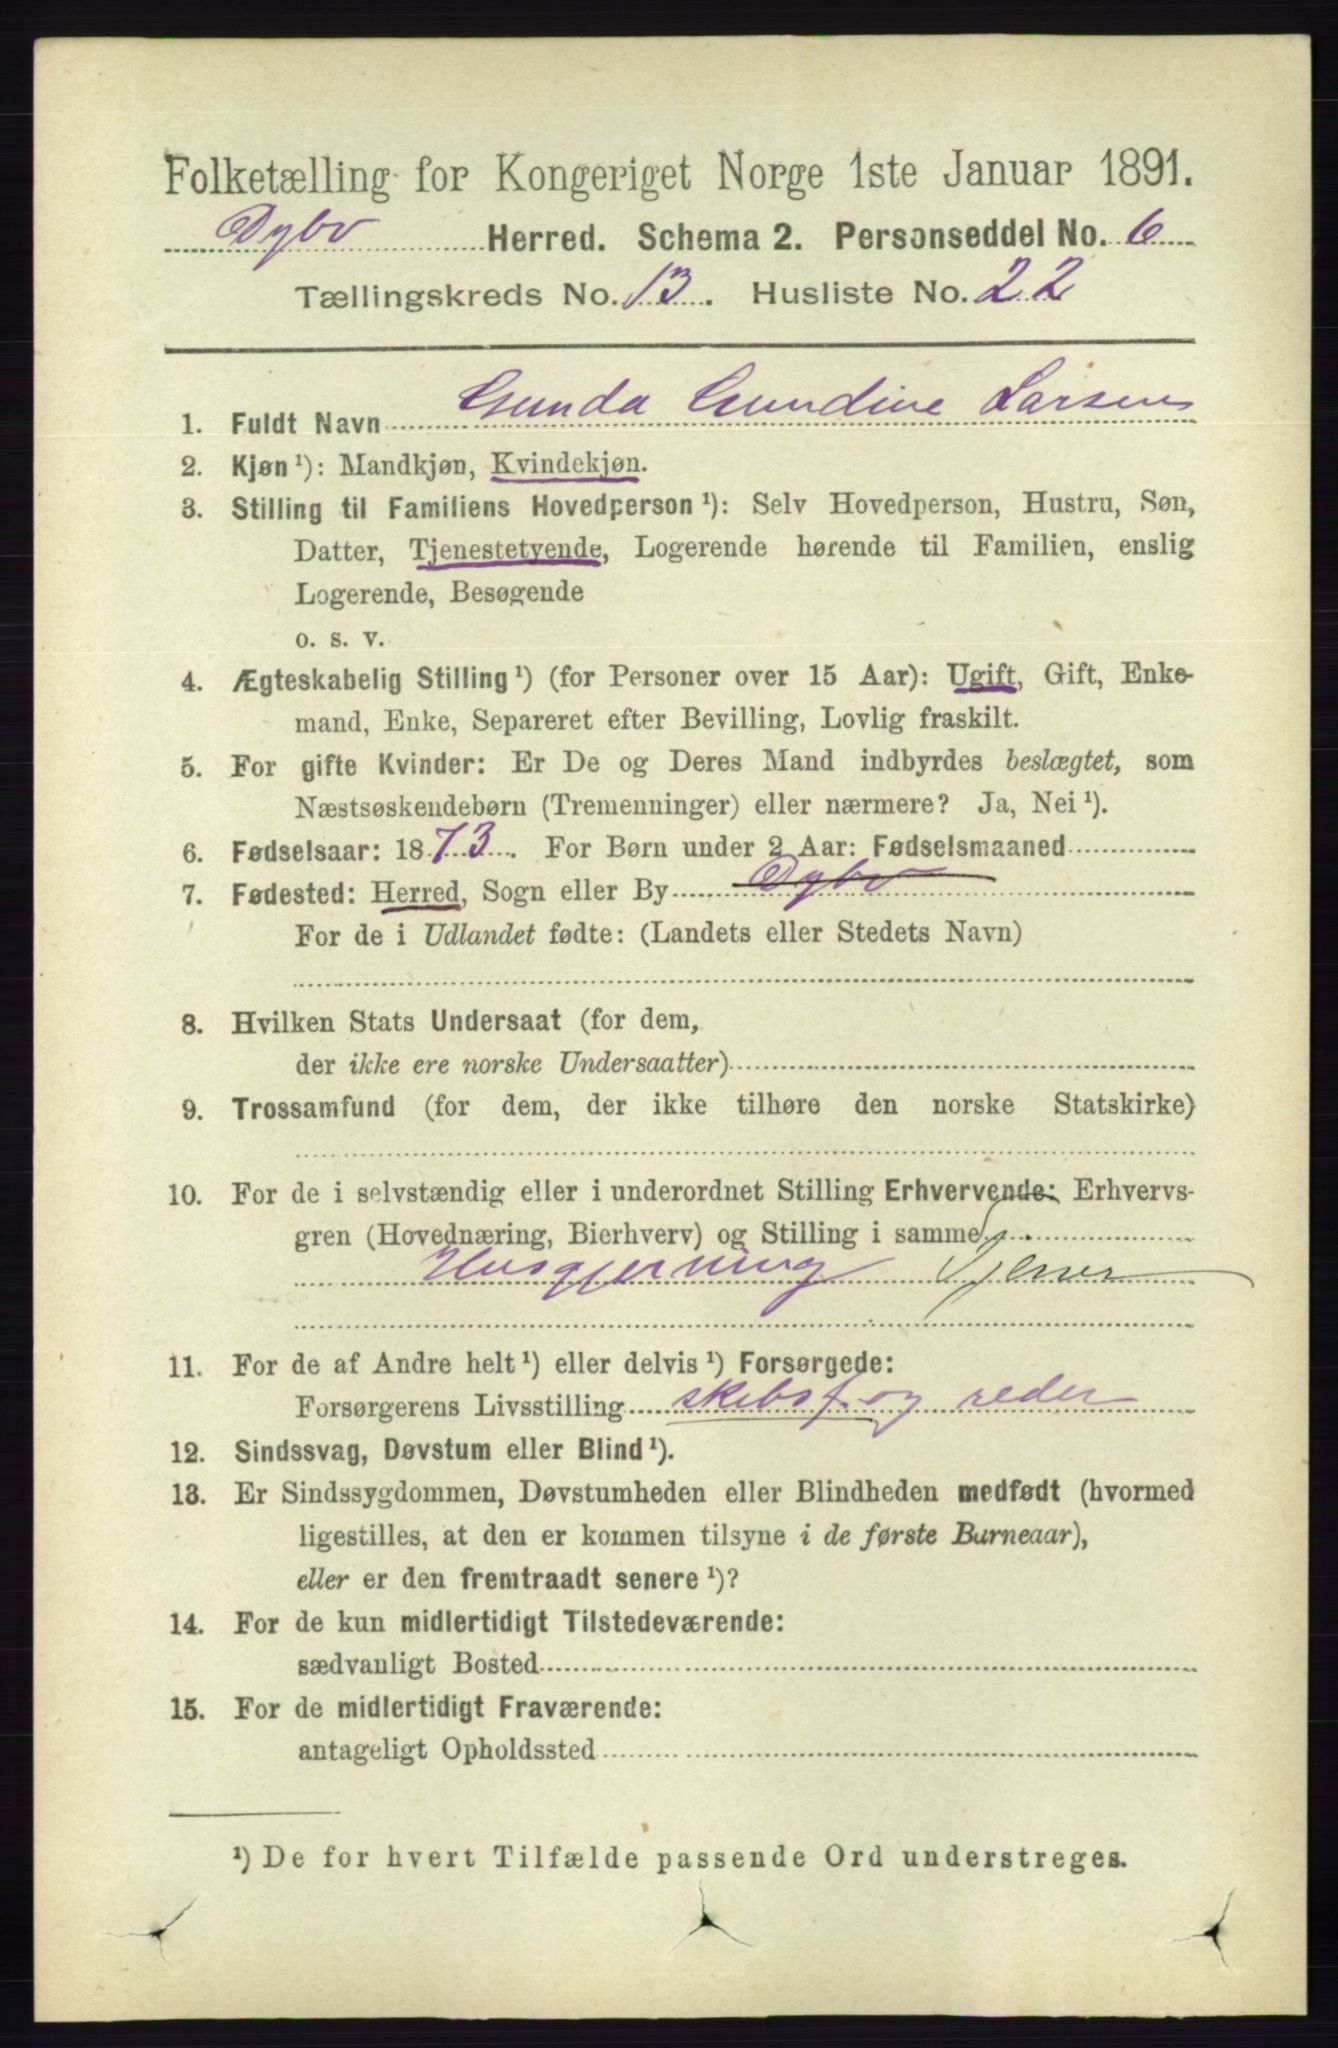 Folketælling for Kongeriget Norge 1ste Januar 1891.
Dybv Herred. Schema 2. Personseddel No. 6
Tællingskreds No. 13. Husliste No. 22
1. Fuldt Navn Gunda Gundine Larsen
2. Kjøn ¹): Mandkjøn, Kvindekjøn.
3. Stilling til Familiens Hovedperson ¹): Selv Hovedperson, Hustru, Søn,
Datter, Tjenestetyende, Logerende hørende til Familien, enslig
Logerende, Besøgende
o. s. v.
4. Ægteskabelig Stilling ¹) (for Personer over 15 Aar): Ugift, Gift, Enke-
mand, Enke, Separeret efter Bevilling, Lovlig fraskilt.
5. For gifte Kvinder: Er De og Deres Mand indbyrdes beslægtet, som
Næstsøskendebørn (Tremenninger) eller nærmere? Ja, Nei ¹).
6. Fødselsaar: 1873. For Børn under 2 Aar: Fødselsmaaned
7. Fødested: Herred, Sogn eller By Dybv
For de i Udlandet fødte: (Landets eller Stedets Navn)
8. Hvilken Stats Undersaat (for dem,
der ikke ere norske Undersaatter)
9. Trossamfund (for dem, der ikke tilhøre den norske Statskirke)
10. For de i selvstændig eller i underordnet Stilling Erhvervende: Erhvervs-
gren (Hovednæring, Bierhverv) og Stilling i samme
Husgjerning Tjener
11. For de af Andre helt ¹) eller delvis ¹) Forsørgede:
Forsørgerens Livsstilling skibsf. og reder
12. Sindssvag, Døvstum eller Blind ¹).
13. Er Sindssygdommen, Døvstumheden eller Blindheden medfødt (hvormed
ligestilles, at den er kommen tilsyne i de første Barneaar),
eller er den fremtraadt senere ¹)?
14. For de kun midlertidigt Tilstedeværende:
sædvanligt Bosted
15. For de midlertidigt Fraværende:
antageligt Opholdssted
¹) De for hvert Tilfælde passende Ord understreges.